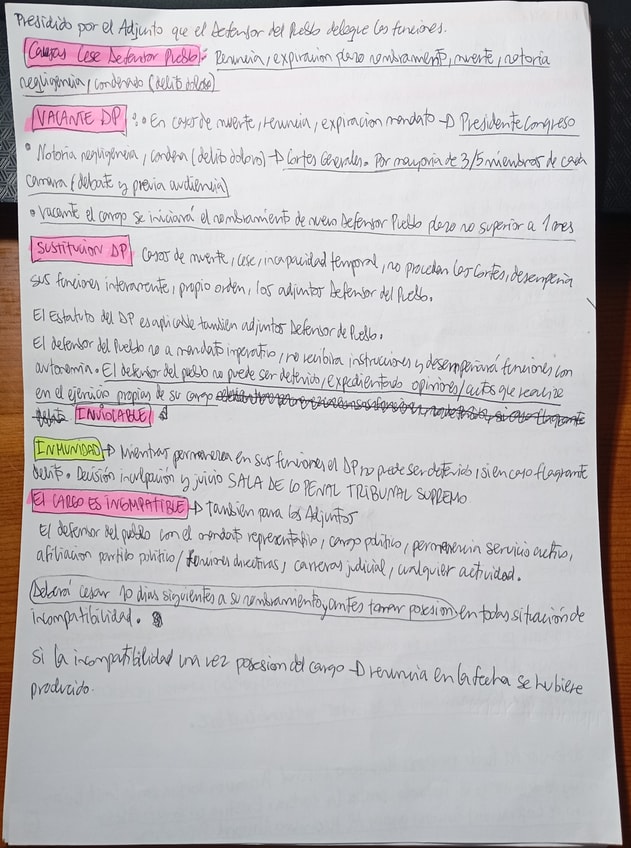 Presidido por el Adjunto que el Defensor del Pueblo delegue las funciones.
Causas Cese Defensor Pueblo: Renuncia, expiracion plazo nombramiento, muerte, notoria
negligencia, condenado (delito doloso)
VACANTE DP : • En casos de muerte, renuncia, expiracion mandato → Presidente Congreso
• Notoria negligencia, condena (delito doloso) → Cortes Generales. Por mayoria de 3/5 miembros de cada
camara (debate y previa audiencia)
• Vacante el cargo se iniciará el nombramiento de nuevo Defensor Pueblo plazo no superior a 1 mes
SUSTITUCION DP Casos de muerte, cese, incapacidad temporal, no procedan las Cortes, desempeña
sus funciones interinamente, propio orden, los adjuntos Defensor del Pueblo.
El Estatuto del DP es aplicable tambien adjuntos Defensor de Pueblo.
El defensor del Pueblo no a mandato imperativo, no recibira instrucciones y desempeñará funciones con
autonomia. El defensor del pueblo no puede ser detenido, expedientado opiniones/actos que realize
en el ejercicio propias de su cargo
INVIOLABLE
INMUNIDAD → Mientras permanezca en sus funciones el DP no puede ser detenido, si en caso flagrante
delito. Decisión inculpación y juicio SALA DE LO PENAL TRIBUNAL SUPREMO
El CARGO ES INCOMPATIBLE → Tambien para los Adjuntos
El defensor del pueblo con el mandato representativo, cargo politico, permanencia servicio activo,
afiliacion partido politico / funciones directivas, carreras judicial, cualquier actividad.
Deberá cesar 10 dias siguientes a su nombramiento, y antes tomar posesion, en todas situación de
incompatibilidad.
Si la incompatibilidad una vez posesion del cargo → renuncia en la fecha se hubiere
producido.